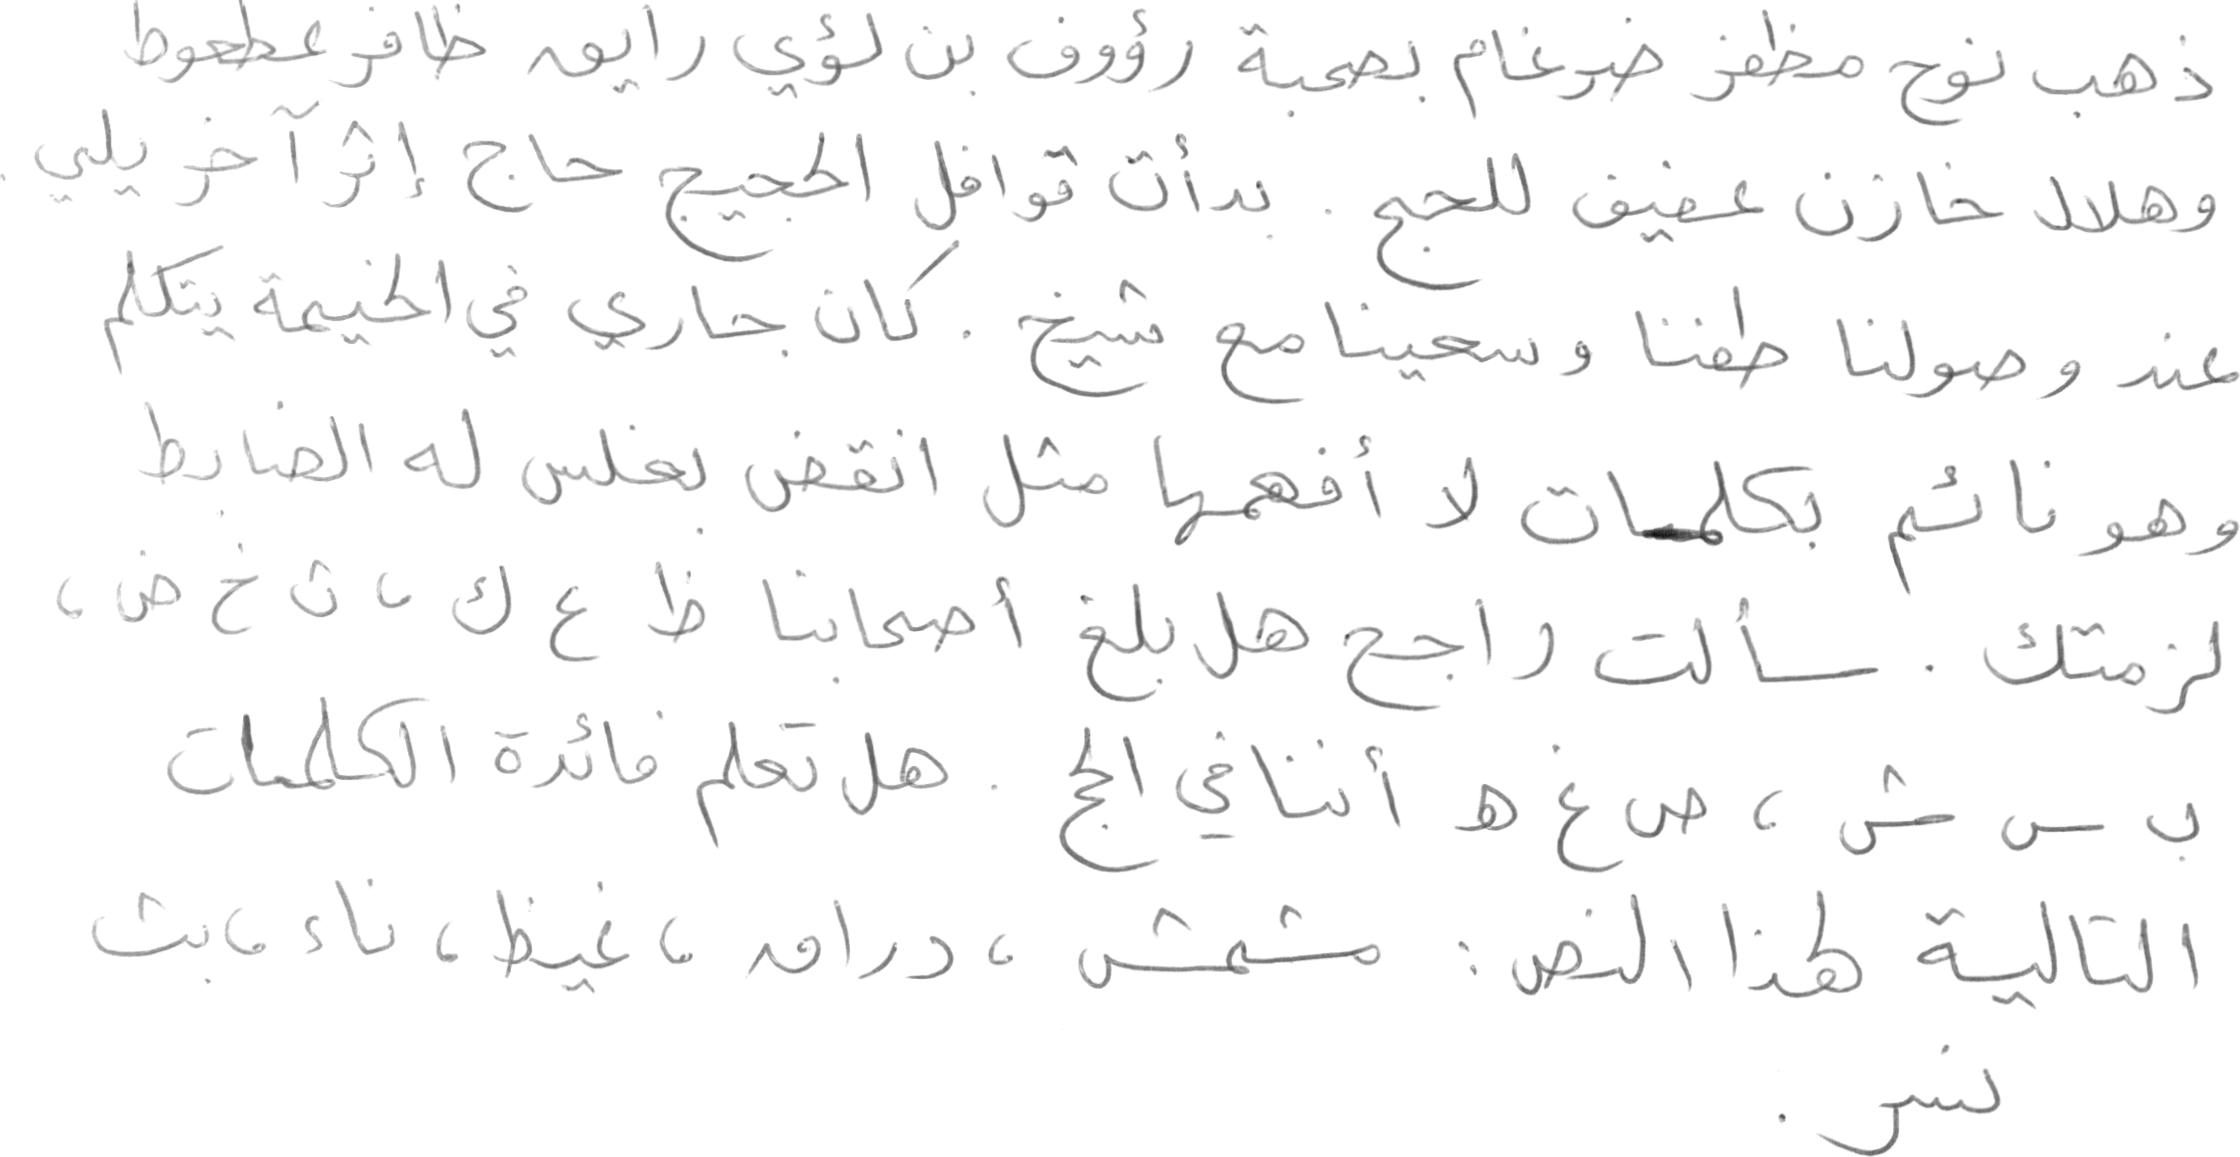 ذهب نوح مظفر ضرغام بصحبة رؤوف بن لؤي رايق ظافر عطعوط
وهلال خازن عفيف للحج . بدأت قوافل الحجيج حاج إثر آخر يلي .
عند وصولنا طفنا وسعينا مع شيخ . كان جاري في الخيمة يتكلم
وهو نائم بكلمات لا أفهمها مثل انقض بغلس له الضابط
لزمتك . سألت راجح هل بلغ أصحابنا ظ ع ك ، ث خ ض ،
ب س ش ، ص غ ه أننا في الحج . هل تعلم فائدة الكلمات
التالية لهذا النص : مشمش ، دراق ، غيظ ، ناء ، بث
نسر .